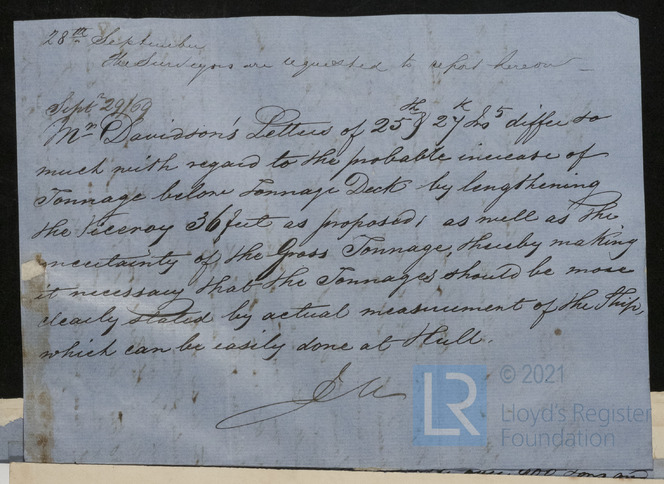 28th September
The Surveyors are requested to report hereon
Septr 29/69
Mr Davidson's Letters of 25th & 27th differ so
much with regard to the probable increase of
Tonnage below Tonnage Deck by lengthening
the Viceroy 36 feet as proposed, as well as the
uncertainty of the Gross Tonnage, thereby making
it necessary that the Tonnages should be more
clearly stated by actual measurement of the Ship,
which can be easily done at Hull.
LR
© 2021
Lloyd's Register
Foundation